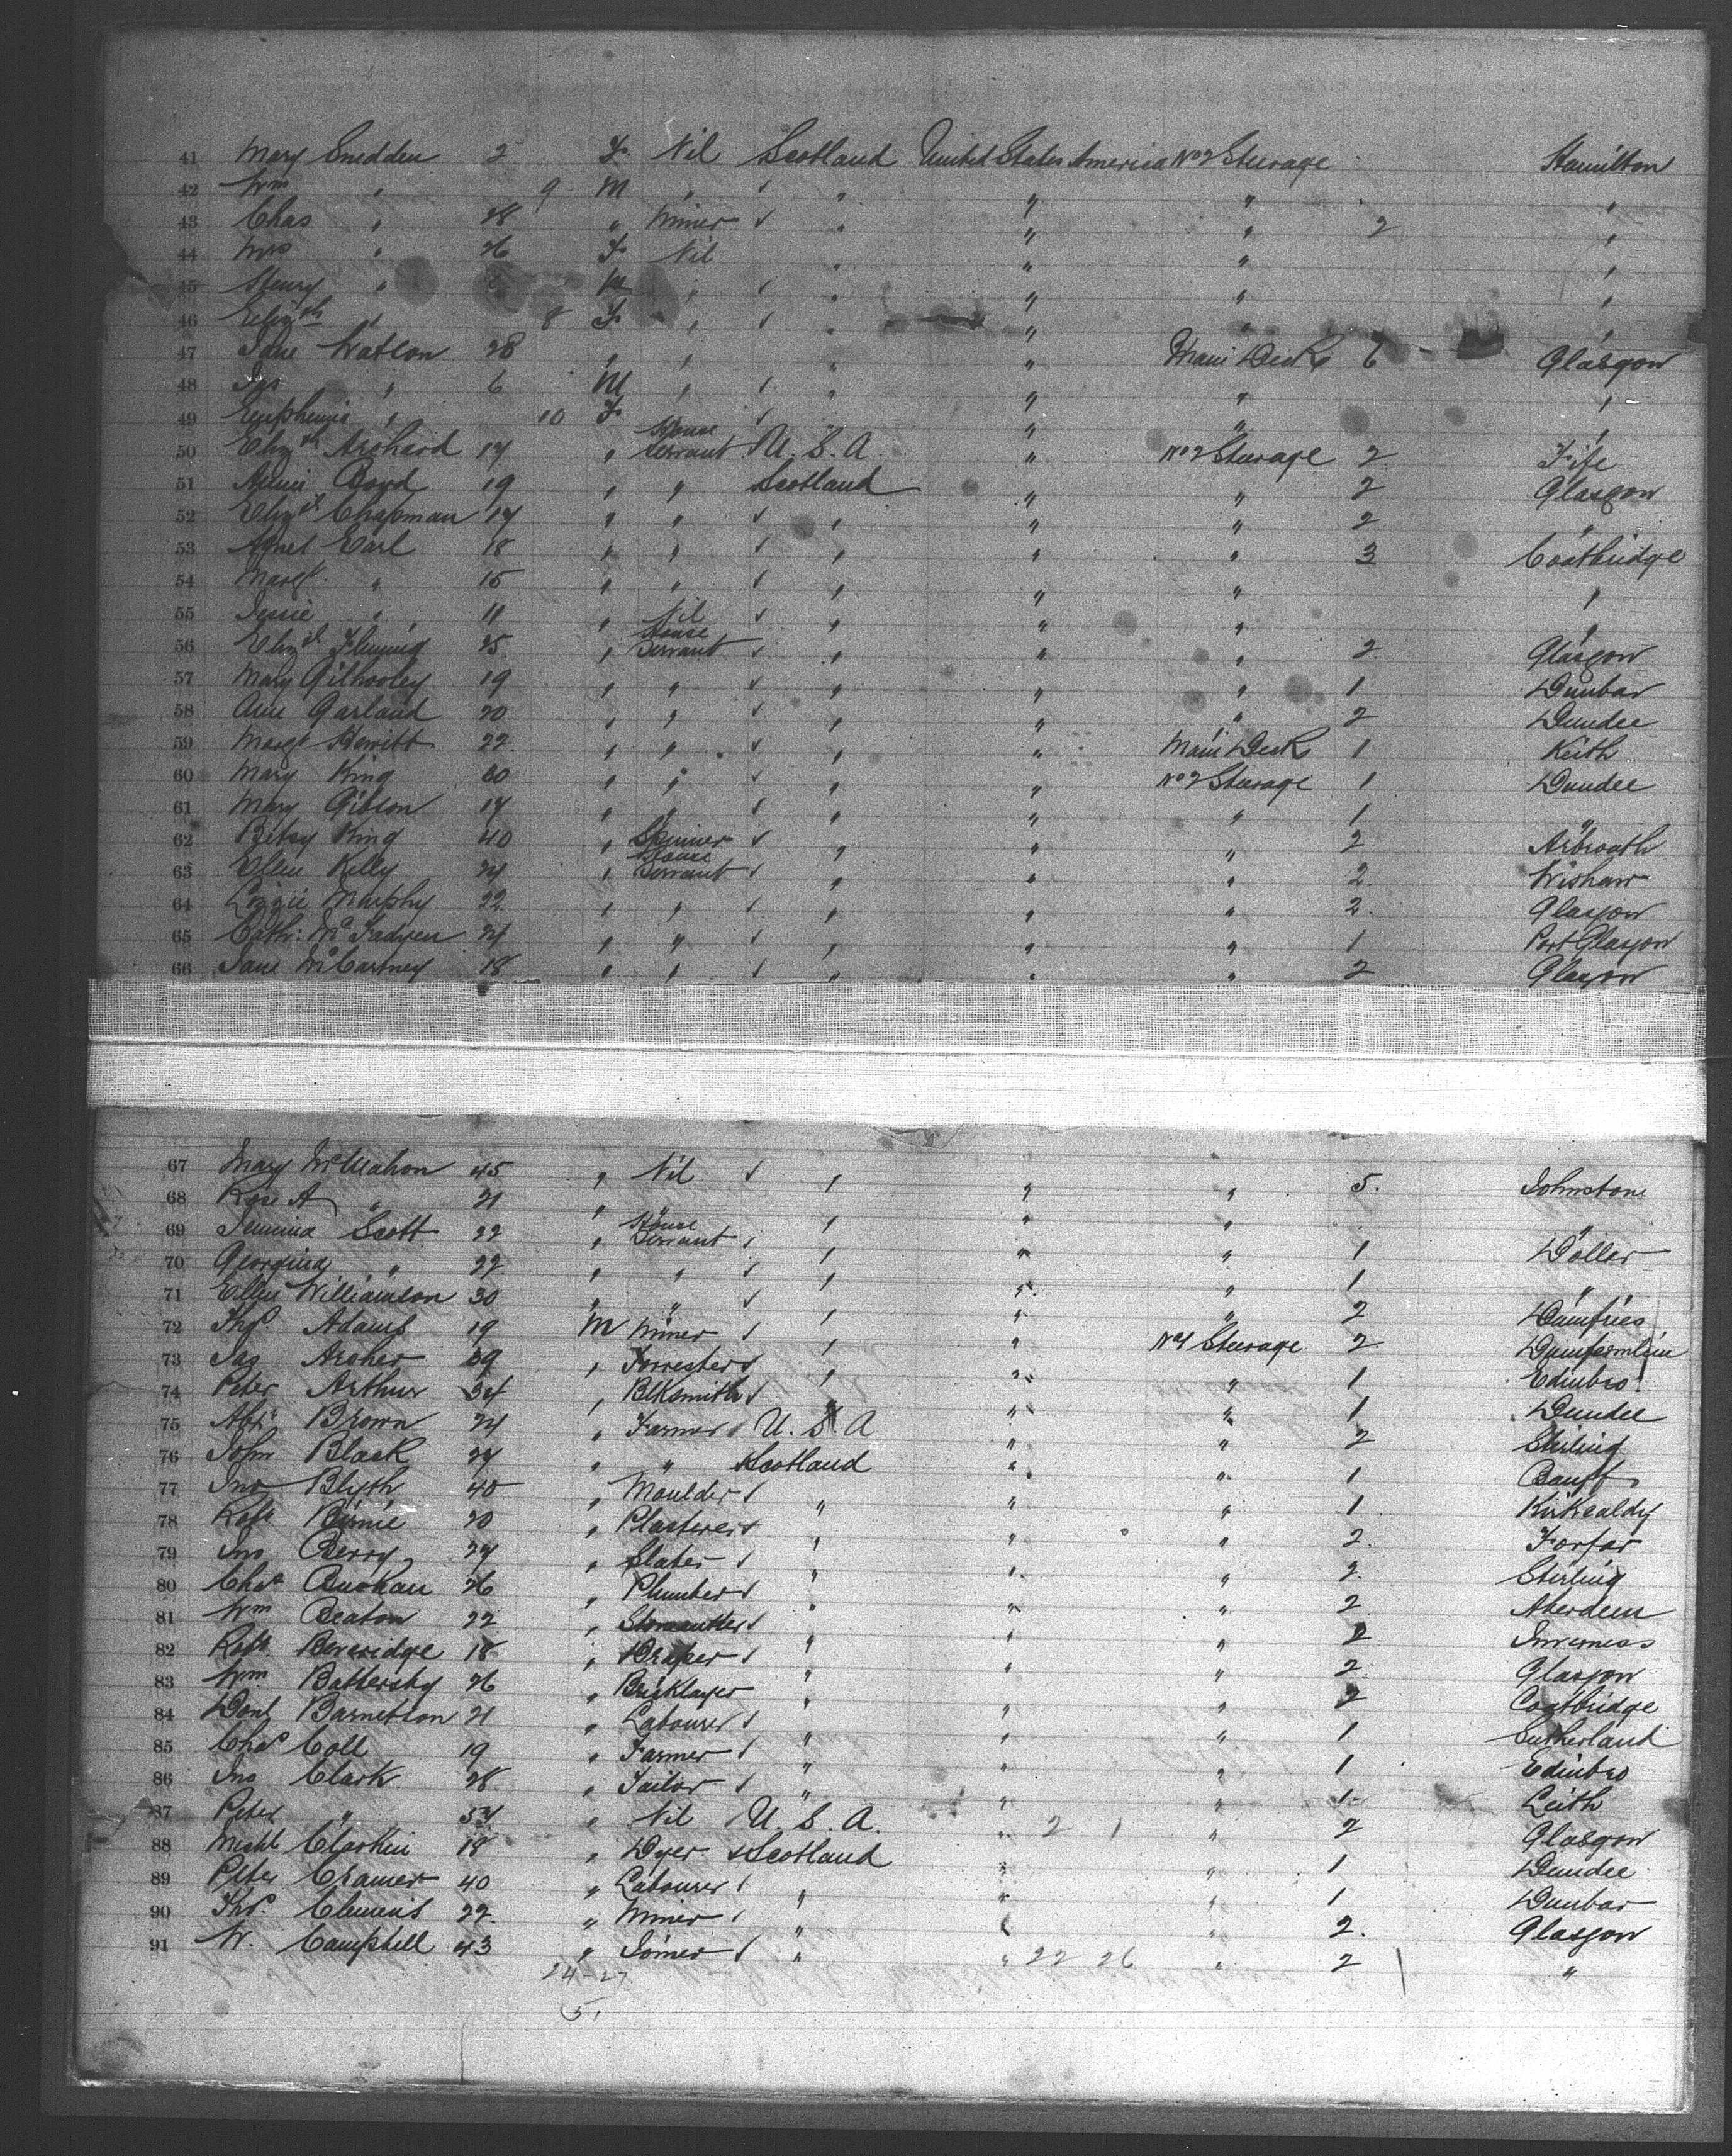 41 Mary Snedden 2 F. Nil Scotland United States America No 2 Steerage Hamilton
42 Wm " 9 M " ✓ " " " "
43 Chas " 28 " Miner ✓ " " " 2 "
44 Mrs " 26 F Nil " " " "
45 Henry " M " ✓ " " " "
46 Elizth " 8 F " ✓ " " " "
47 Jane Watson 28 " " " " Main Deck 6 Glasgow
48 Jas " 6 M " ✓ " " " "
49 Euphemia " 10 F ✓ " " "
50 Elizth Archard 17 " House Servant U.S.A " No 2 Steerage 2 Fife
51 Annie Boyd 19 " " Scotland " " 2 Glasgow
52 Elizth Chapman 17 " " ✓ " " " 2 "
53 Agnes Earl 18 " " ✓ " " " 3 Coatbridge
54 Margt " 15 " " ✓ " " " "
55 Jessie " 11 " Nil ✓ " " " "
56 Elizth Fleming 25 " House Servant ✓ " " " 2 Glasgow
57 Mary Gilhooley 19 " " ✓ " " " 1 Dunbar
58 Ann Garland 20 " " ✓ " " " 2 Dundee
59 Margt Hewitt 22 " " ✓ " " Main Deck 1 Keith
60 Mary King 30 " " ✓ " " No 2 Steerage 1 Dundee
61 Mary Gibson 17 " " ✓ " " " 1 "
62 Betsy King 40 " Spinner ✓ " " " 2 Arbroath
63 Ellen Kelly 24 " House Servant ✓ " " " 2 Wishaw
64 Lizzie Murphy 22 " " ✓ " " " 2. Glasgow
65 Cath: McFadyen 24 " " ✓ " " " 1 Port Glasgow
66 Jane McCartney 18 " " ✓ " " " 2 Glasgow
67 Mary McMahon 45 " Nil ✓ " " " 5. Johnstone
68 Rose A " 21 " " " " " "
69 Jemima Scott 22 " House Servant ✓ " " " 1 Dollar
70 Georgina " 22 " " ✓ " " " 1 "
71 Ellen Williamson 30 " " ✓ " " " 2 Dumfries
72 Thos. Adams 19 M Miner ✓ " " No 1 Steerage 2 Dunfermlin
73 Jas Archer 39 " Forrester ✓ " " " 1 Edinbro'
74 Peter Arthur 34 " Blksmith ✓ " " 1 Dundee
75 Brown 24 " Farmer ✓ U.S.A " " 2 Stirling
76 John Black 27 " " Scotland " " 1 Banff
77 Jno Blyth 40 " Moulder ✓ " " " 1 Kirkcaldy
78 Robt Birnie 20 " Plasterer ✓ " " " 2. Forfar
79 Jno Berry 27 " Slater ✓ " " " 2. Stirling
80 Chas Buchan 26 " Plumber ✓ " " " 2 Aberdeen
81 Wm Beaton 22 " ✓ " " " 2 Inverness
82 Robt. Beveridge 18 " Draper ✓ " " " 2 Glasgow
83 Wm. Battersby 26 " Bricklayer " " " 2 Coatbridge
84 Donl Barnetson 21 " Labourer ✓ " " " 1 Sutherland
85 Chas Coll 19 " Farmer ✓ " " " 1 Edinbro
86 Jno Clark 28 " Tailor ✓ " " " 1 Leith
87 Peter " 54 " Nil U.S.A. " 2 1 " 2 Glasgow
88 Michl Clarkin 18 " Dyer ✓ Scotland " " 1 Dundee
89 Peter Cramer 40 " Labourer ✓ " " " 1 Dunbar
90 Thos. Clemens 22. " Miner ✓ " " " 2. Glasgow
91 W. Campbell 43 " Joiner ✓ " " 22 26 " 2 "
24-27
51